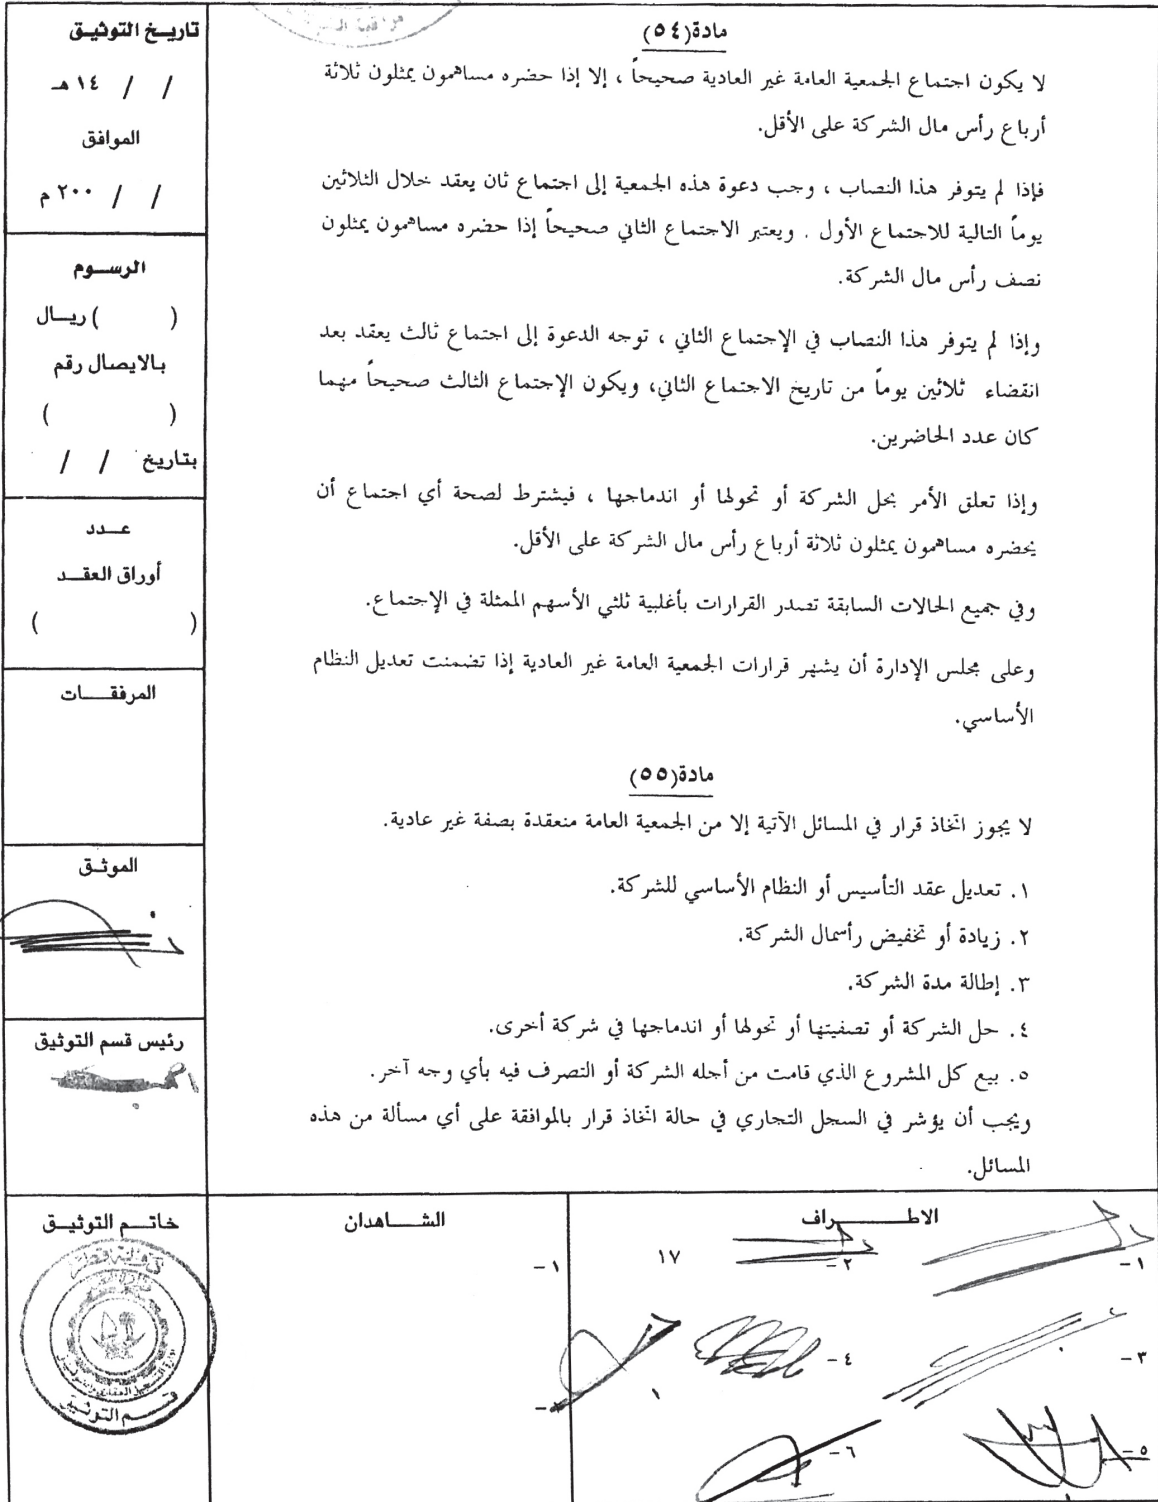 مادة(٥٤)
لا يكون اجتماع الجمعية العامة غير العادية صحيحاً ، إلا إذا حضره مساهمون يمثلون ثلاثة
أرباع رأس مال الشركة على الأقل.
فإذا لم يتوفر هذا النصاب ، وجب دعوة هذه الجمعية إلى اجتماع ثان يعقد خلال الثلاثين
يوماً التالية للاجتماع الأول . ويعتبر الاجتماع الثاني صحيحاً إذا حضره مساهمون يمثلون
نصف رأس مال الشركة.
وإذا لم يتوفر هذا النصاب في الإجتماع الثاني ، توجه الدعوة إلى اجتماع ثالث يعقد بعد
انقضاء ثلاثين يوماً من تاريخ الاجتماع الثاني، ويكون الإجتماع الثالث صحيحاً مهما
كان عدد الحاضرين.
وإذا تعلق الأمر بحل الشركة أو تحولها أو اندماجها ، فيشترط لصحة أي اجتماع أن
يحضره مساهمون يمثلون ثلاثة أرباع رأس مال الشركة على الأقل.
وفي جميع الحالات السابقة تصدر القرارات بأغلبية ثلثي الأسهم الممثلة في الإجتماع.
وعلى مجلس الإدارة أن يشهر قرارات الجمعية العامة غير العادية إذا تضمنت تعديل النظام
الأساسي.
مادة(٥٥)
لا يجوز اتخاذ قرار في المسائل الآتية إلا من الجمعية العامة منعقدة بصفة غير عادية.
١. تعديل عقد التأسيس أو النظام الأساسي للشركة.
٢. زيادة أو تخفيض رأسمال الشركة.
٣. إطالة مدة الشركة.
٤. حل الشركة أو تصفيتها أو تحولها أو اندماجها في شركة أخرى.
٥. بيع كل المشروع الذي قامت من أجله الشركة أو التصرف فيه بأي وجه آخر.
ويجب أن يؤشر في السجل التجاري في حالة اتخاذ قرار بالموافقة على أي مسألة من هذه
المسائل.
تاريخ التوثيق
/ / ١٤ هـ
الموافق
/ / ٢٠٠ م
الرسوم
( ) ريال
بالايصال رقم
( )
بتاريخ / /
عدد
أوراق العقد
( )
المرفقات
الموثق
رئيس قسم التوثيق
الاطراف
١-
٢-
٣-
٤-
٥-
٦-
١٧
الشاهدان
١-
خاتم التوثيق
دولة قطر
قسم التوثيق